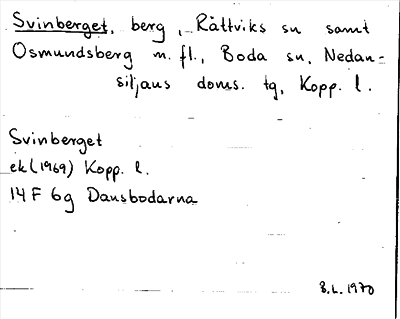 Svinberget, berg, Rättviks sn samt
Osmundsberg m. fl., Boda sn, Nedan-
siljans doms. tg, Kopp. l.
Svinberget
ek (1969) Kopp. l.
14 F 6g Dansbodarna
B.L. 1970